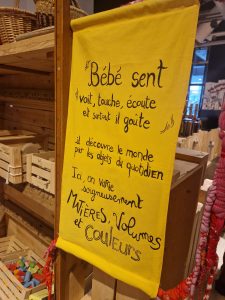 "Bébé sent
voit, touche, écoute
et surtout il goûte"
il découvre le monde
par les objets du quotidien
Ici, on varie
soigneusement
MATIÈRES, Volumes
et COULEURS